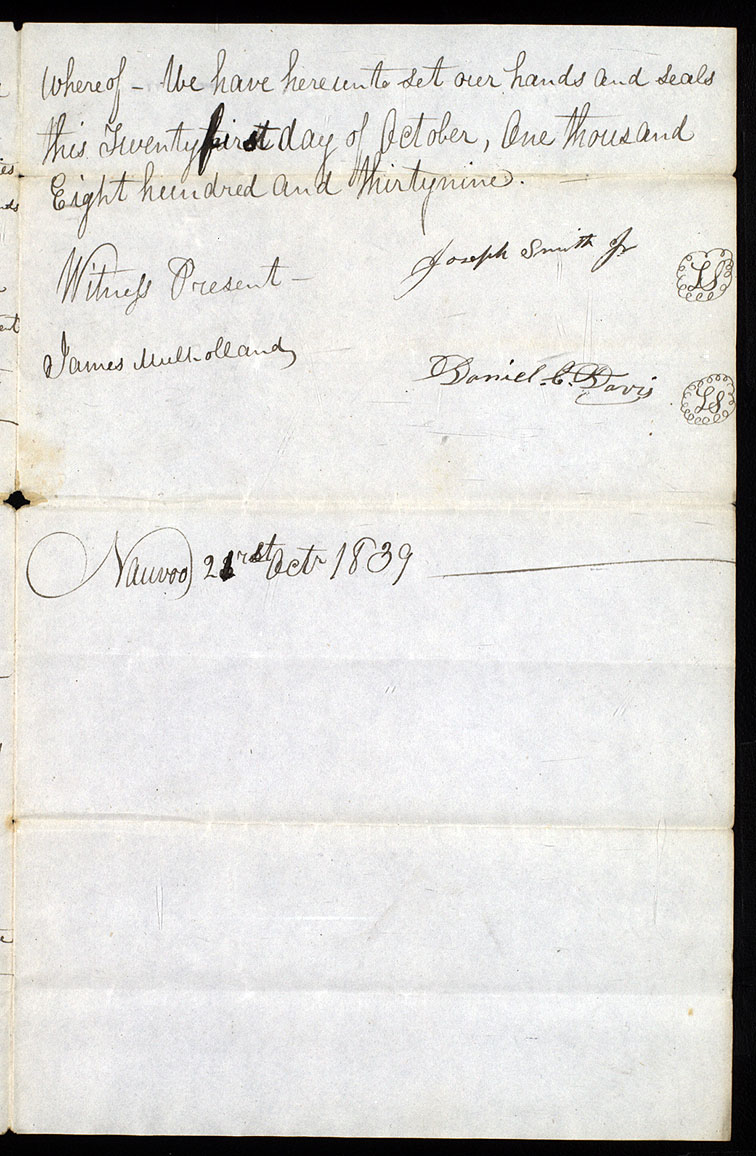 whereof – We have hereunto set our hands and seals
this Twenty first day of October, One thousand
Eight hundred and thirtynine.
Witness Present –
Joseph Smith Jr
LS
James Mulholland
Daniel. C. Davis
LS
Nauvoo 21rst Octr 1839